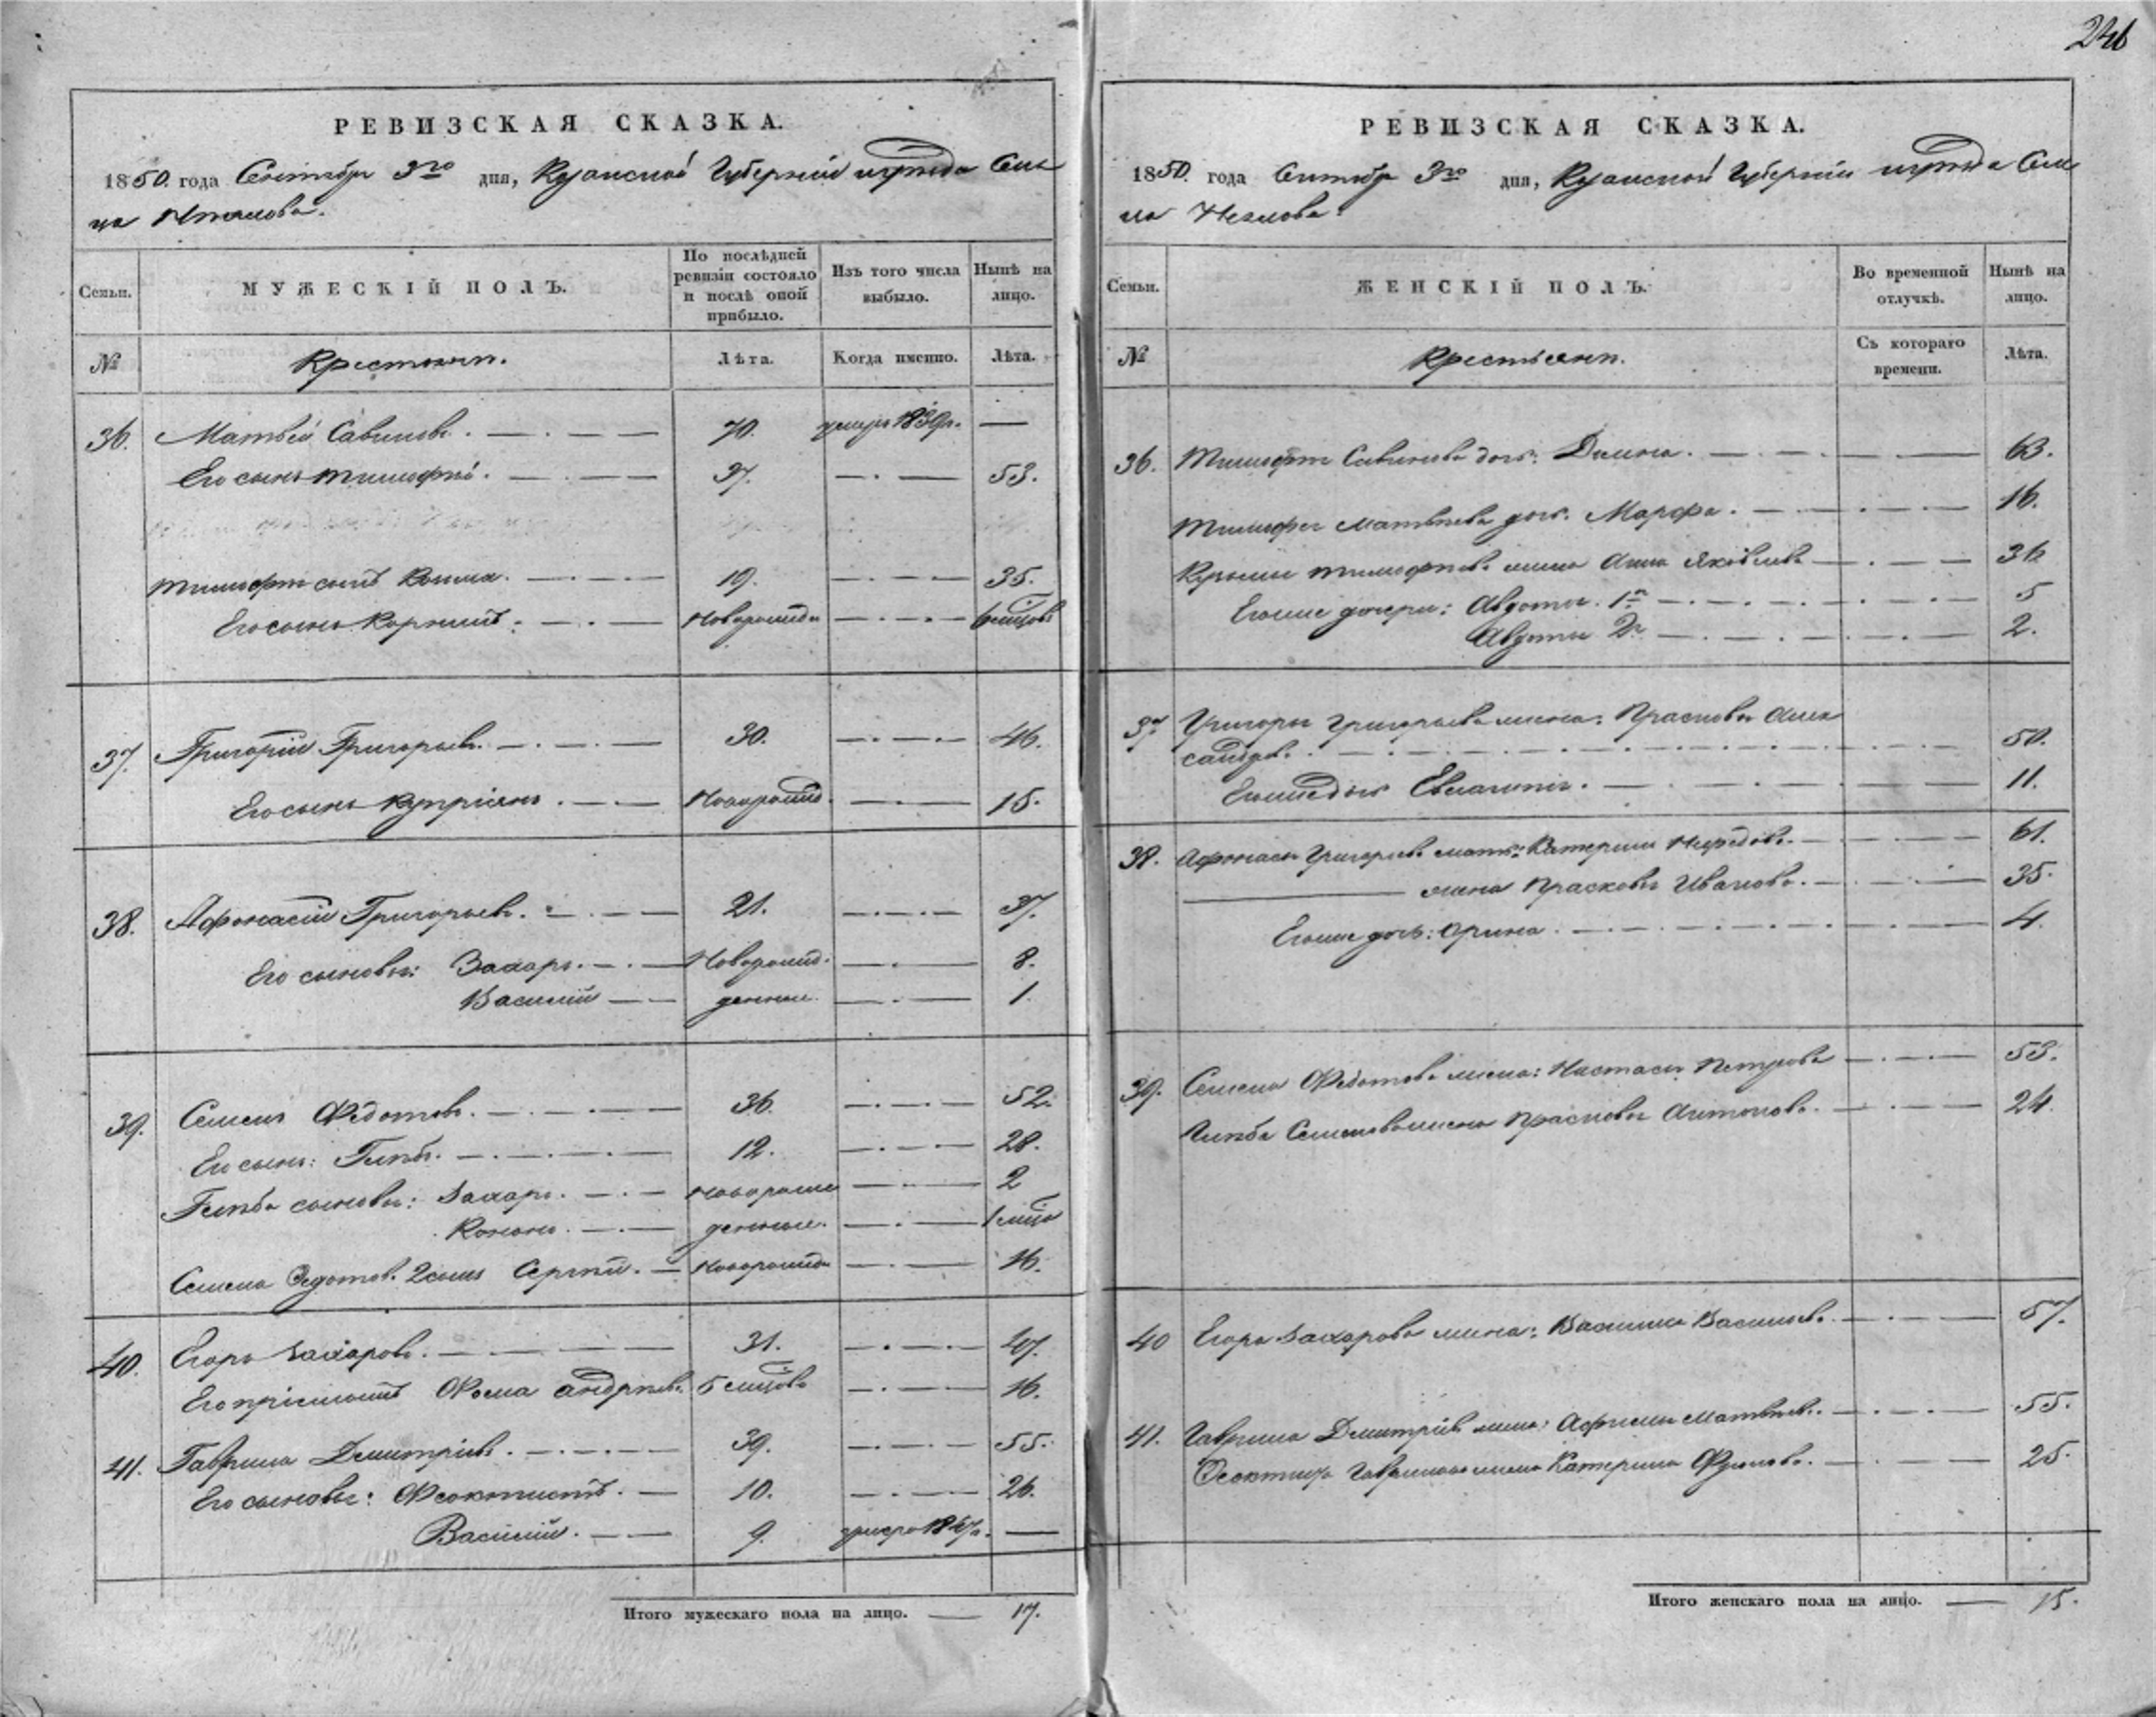 246
РЕВИЗСКАЯ СКАЗКА.
1850. года Сентября 3го дня, Рязанской Губернии уезда Сель
ца
Семьи.
МУЖЕСКІЙ ПОЛЪ.
По послѣдней ревизіи состояло и послѣ оной прибыло.
Изъ того числа выбыло.
Нынѣ на лицо.
№
Крестьяни.
Лѣта.
Когда именно.
Лѣта.
36. Матвей Савинов. 70. умеръ 183 —
Его сынъ Тимофей. 37. 53.
Тимофея сынъ Козма. 19. 35.
Его сынъ Новорожд 6 мцовъ
37. Григорій Григорьевъ. 30. 46.
Его сынъ Купріянъ. Новорожд. 15.
38. Афонасій Григорьевъ. 21. 37.
Его сыновья: Захаръ. Новорожд. 8.
Василий денные. 1.
39. Семенъ Федотовъ. 36. 52.
Его сынъ: Глебъ. 12. 28.
Глеба сыновья: Захаръ. Новорож 2
Кононъ. денные. 1 мца
Семена Федотов. 2 сынъ Сергей. Новорожд 16.
40. Егоръ Захаровъ. 31. 47.
Его пріемышъ Фома Андреевъ 5 мцовъ 16.
41. Гаврила Дмитріевъ. 39. 55.
Его сыновья: Феоктистъ. 10. 26.
Василій. 9. умеръ 184 —
Итого мужескаго пола на лицо. 17.
РЕВИЗСКАЯ СКАЗКА.
1850. года Сентября 3го дня, Рязанской Губернии уезда Сель
ца
Семьи.
ЖЕНСКІЙ ПОЛЪ.
Во временной отлучкѣ.
Нынѣ на лицо.
№
Крестьяни.
Съ котораго времени.
Лѣта.
36. 63.
Тимофея Матвеева доч. Марфа. 16.
Козмы Тимофеева жена Анна Яковлева 36
Ево же дочери: Авдотья 1я 5
Авдотья 2я 2.
37. Григорья Григорьева жена: Прасковья Алек
сандров. 50.
Ево же доч 11.
38. Афонасья Григорьева мать: Катерина 61.
жена Прасковья Иванова. 35.
Ево же дочь: Арина. 4.
39. Семена Федотова жена: Настасья Петрова 53.
Глеба Семенова жена Прасковья Антонова. 24.
40 Егора Захарова жена: Василиса Васильева. 57.
41. Гаврила Дмитріев жена: Афимья Матвеев. 55.
Феоктиста Гаврилова жена Катерина 25.
Итого женскаго пола на лицо. 15.